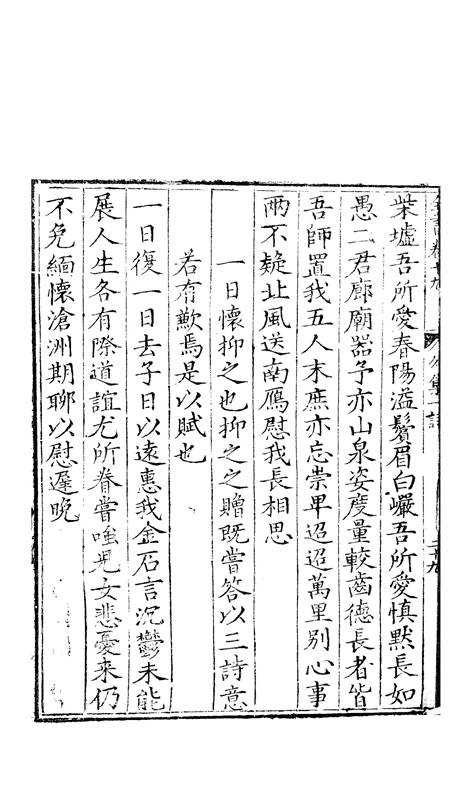 柴墟吾所愛春陽溢鬢眉白巖吾所愛慎黙長如
愚二君廊廟器予亦山泉姿度量較齒德長者皆
吾師置我五人末庶亦忘崇卑迢迢萬里別心事
兩不疑北風送南鴈慰我長相思
一日懷抑之也抑之之贈既嘗答以三詩意
若有歉焉是以賦也
一日復一日去子日以遠惠我金石言沉鬱未能
展人生各有際道誼尤所眷嘗嗤兒女悲憂來仍
不免緬懷滄洲期聊以慰遲晚